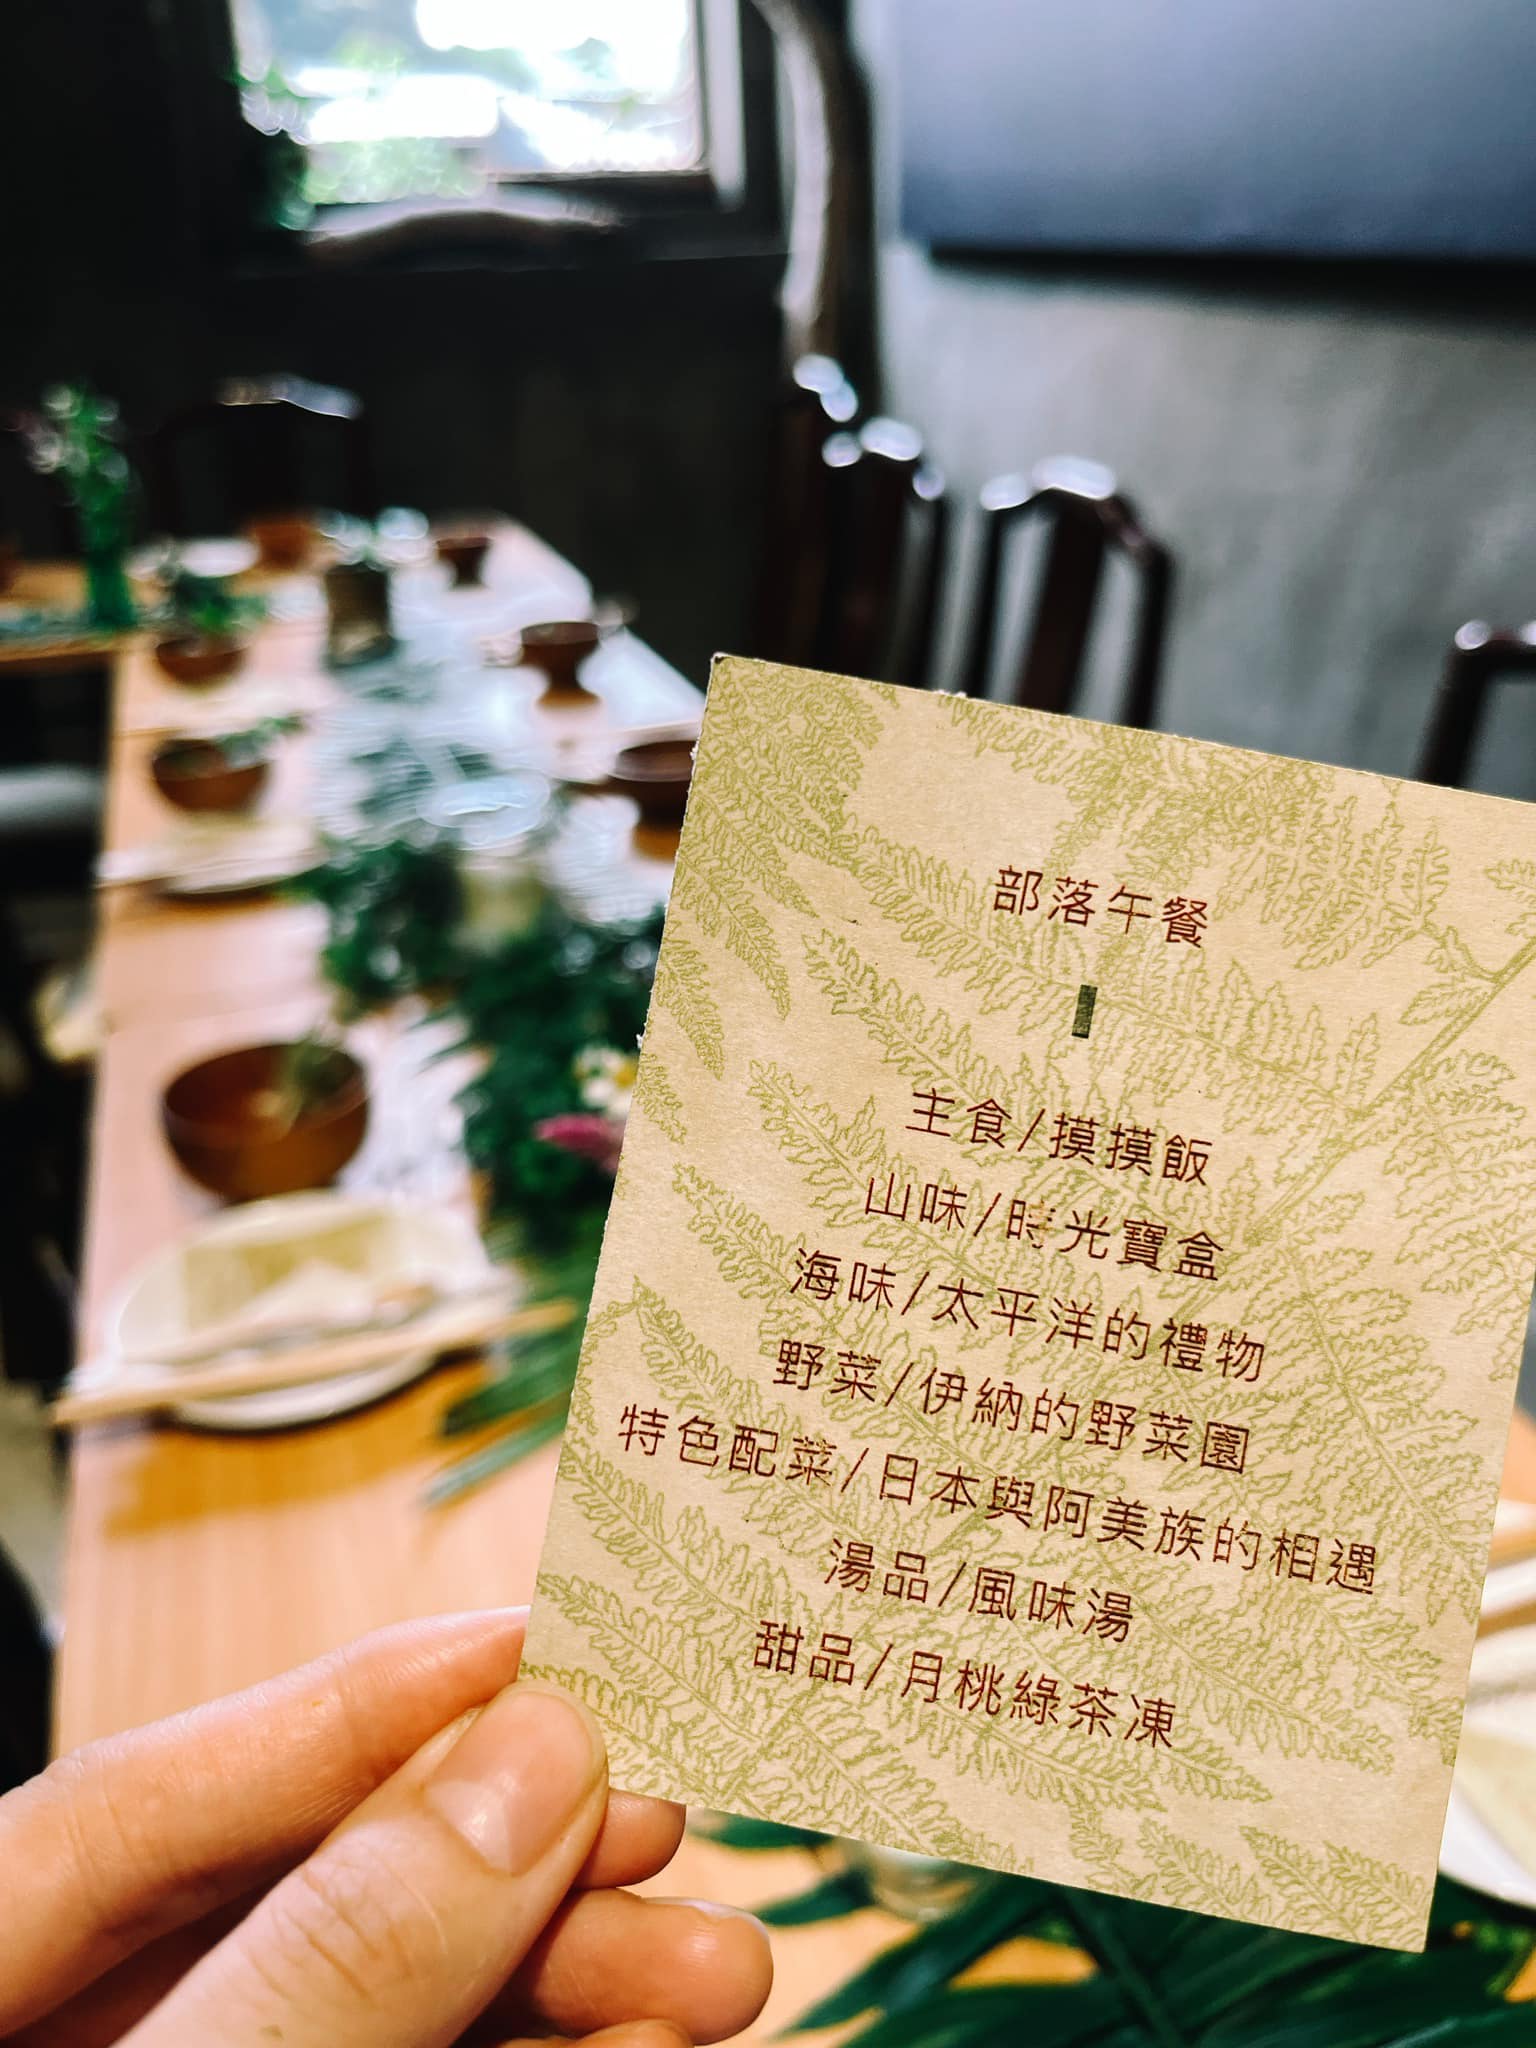 部落午餐
主食/摸摸飯
山味/時光寶盒
海味/太平洋的禮物
野菜/伊納的野菜園
特色配菜/日本與阿美族的相遇
湯品/風味湯
甜品/月桃綠茶凍